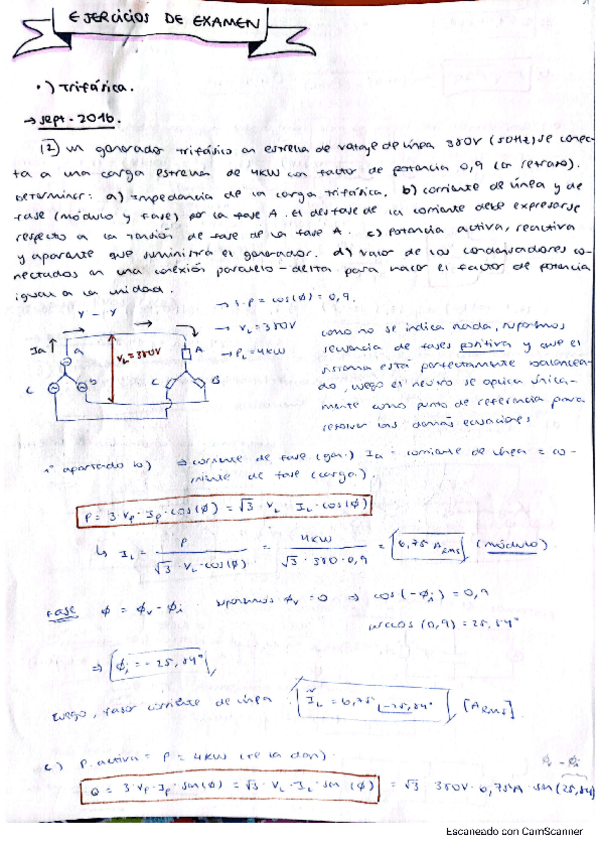 EJERCICIOS DE EXAMEN
•) Trifásica.
→ Sept-2016.
(2) Un generador trifásico en estrella de voltaje de línea 380V (50Hz) se conec-
ta a una carga estrella de 4KW con factor de potencia 0,9 (en retraso).
Determinar: a) Impedancia de la carga trifásica. b) corriente de línea y de
fase (módulo y fase) por la fase A. El desfase de la corriente debe expresarse
respecto a la tensión de fase de la fase A. c) Potencia activa, reactiva
y aparente que suministra el generador. d) valor de los condensadores co-
nectados en una conexión paralelo-delta para hacer el factor de potencia
igual a la unidad.
Y - Y
→ f.p = cos(ϕ) = 0,9.
→ VL = 380V
→ PL = 4KW
Ia
a
VL = 380V
A
c
b
C
B
como no se indica nada, suponemos
secuencia de fases positiva y que el
sistema está perfectamente balancea-
do, luego el neutro se aplica única-
mente como punto de referencia para
resolver las demás ecuaciones
1º apartado b) ⇒ corriente de fase (gen.) Ia = corriente de línea = co-
rriente de fase (carga).
P = 3·Vp·Ip·cos(ϕ) = √3·VL·IL·cos(ϕ)
↳ IL = P / √3·VL·cos(ϕ) = 4KW / √3·380·0,9 = 6,75 ARMS (módulo).
Fase ϕ = ϕv - ϕi suponemos ϕv = 0 ⇒ cos(-ϕi) = 0,9
arccos(0,9) = 25,84º
⇒ ϕi = -25,84º
luego, fasor corriente de línea ĨL = 6,75 ∟-25,84º [ARMS].
c) P.activa = P = 4KW (te la dan).
ϕv - ϕi
Q = 3·Vp·Ip·sen(ϕ) = √3·VL·IL·sen(ϕ) = √3·380V·6,75A·sen(25,84)
Escaneado con CamScanner